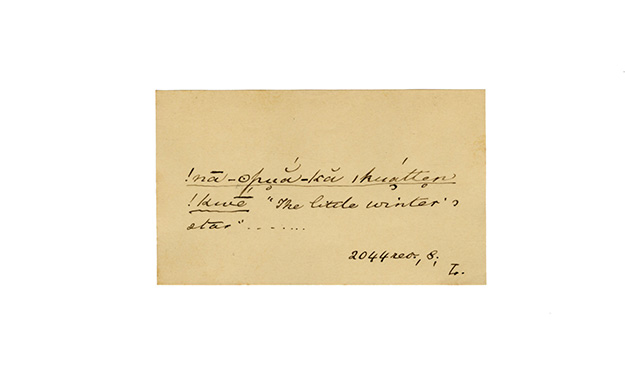 !nā-ɔpuă-kă ǀkuátten
!kwẽ "The little winter's
star" . . . . . . .
2044 rev., 8;
L.